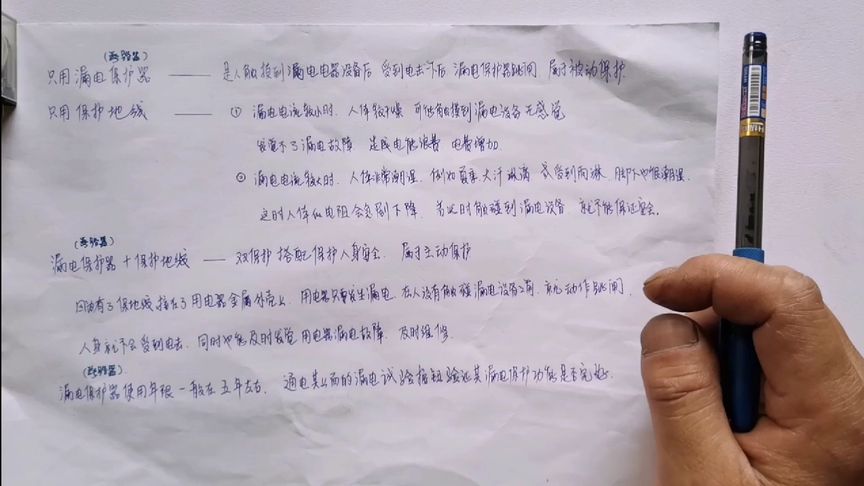 (断路器)
只用漏电保护器 —— 是人触摸到漏电电器设备后 受到电击了后 漏电保护器跳闸 属于被动保护.
只用保护地线 —— ① 漏电电流较小时、人体较干燥 可能触摸到漏电设备无感觉
发觉不了漏电故障 造成电能浪费 电费增加.
② 漏电电流较大时、人体非常潮湿、例如夏季大汗淋漓 或受到雨淋、脚下也很潮湿.
这时人体的电阻会急剧下降、若此时触碰到漏电设备 就不能保证安全。
(断路器)
漏电保护器 + 保护地线 —— 双保护 搭配保护人身安全、属于主动保护
因为有了保地线接在了用电器金属外壳上、用电器只要发生漏电、在人没有触碰漏电设备之前、就先动作跳闸、
人身就不会受到电击、同时也能及时发觉用电器漏电故障、及时维修.
(断路器)
漏电保护器使用年限一般在五年左右、通电其上面的漏电试验按钮验证其漏电保护功能是否完好.